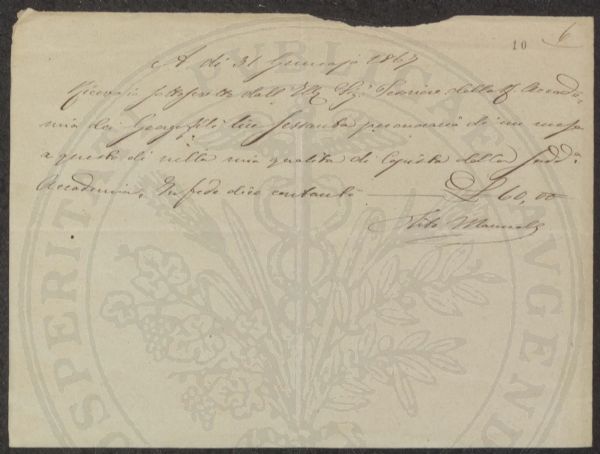 10 6
A dì 31 Gennajo 1867
Ricevo io sottoscritto dall' Ill. Sig. Tesoriere della R. Accade-
mia dei Georgofili lire sessanta per onorario di un mese
a questo dì nella mia qualità di Copista della sudd.a
Accademia. In fede dico contanti £ 60,00
PROSPERITATI PUBLICAE AUGENDAE